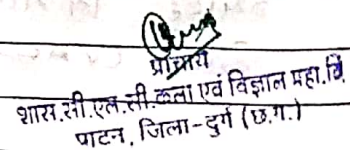 प्राचार्य
शास.सी.एल.सी.कला एवं विज्ञान महा.वि.
पाटन, जिला-दुर्ग (छ.ग.)